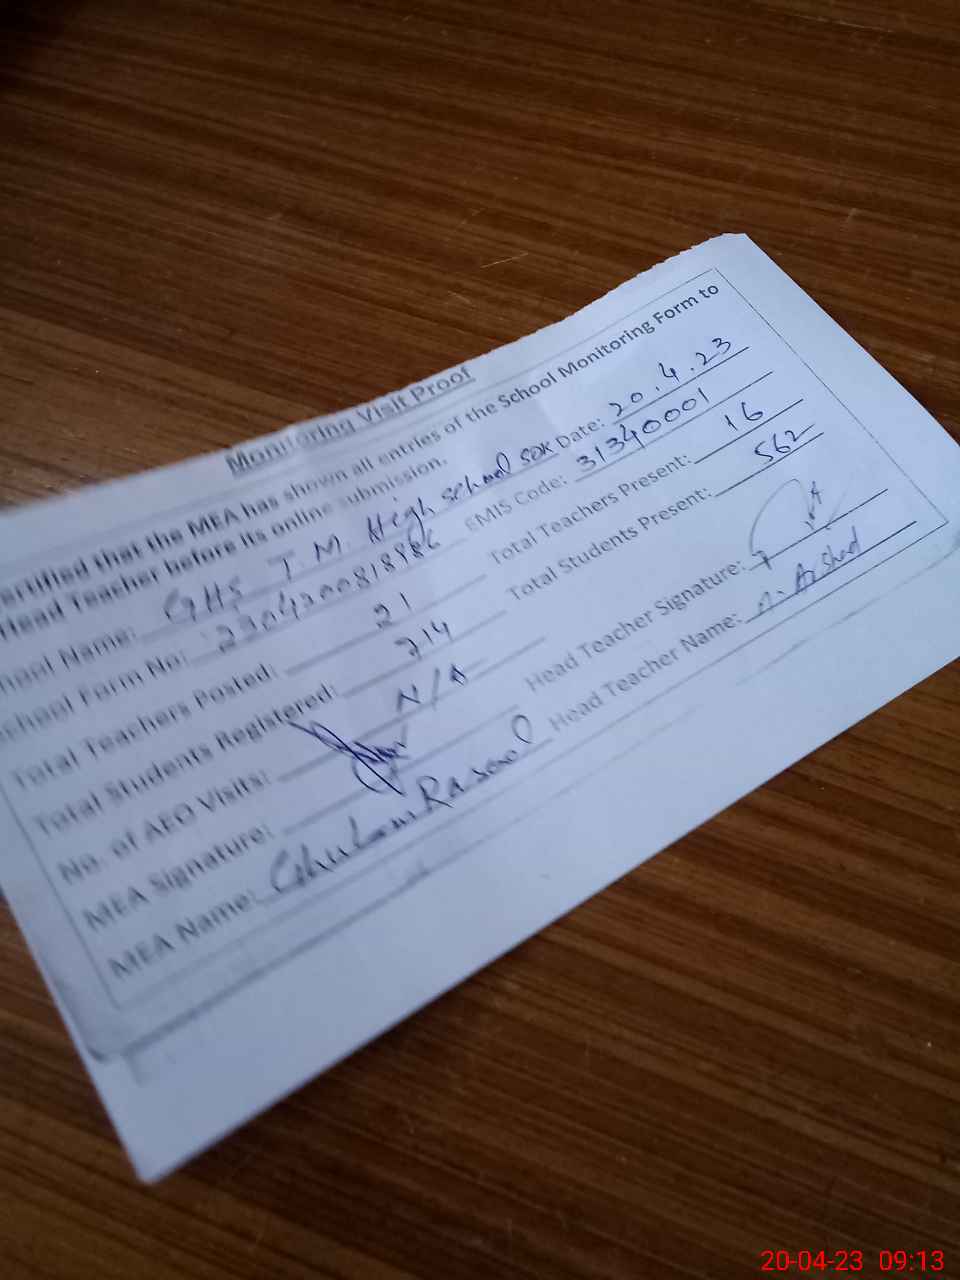 Monitoring Visit Proof
ertified that the MEA has shown all entries of the School Monitoring Form to
Head Teacher before its online submission.
hool Name: GHS T.M. High school SDK Date: 20.4.23
chool Form No: EMIS Code: 31340001
Total Teachers Posted: 21 Total Teachers Present: 16
Total Students Registered: 714 Total Students Present: 562
No. of AEO Visits: N/A
MEA Signature: Head Teacher Signature:
MEA Name: Ghulam Rasool Head Teacher Name: Arshad
20-04-23 09:13